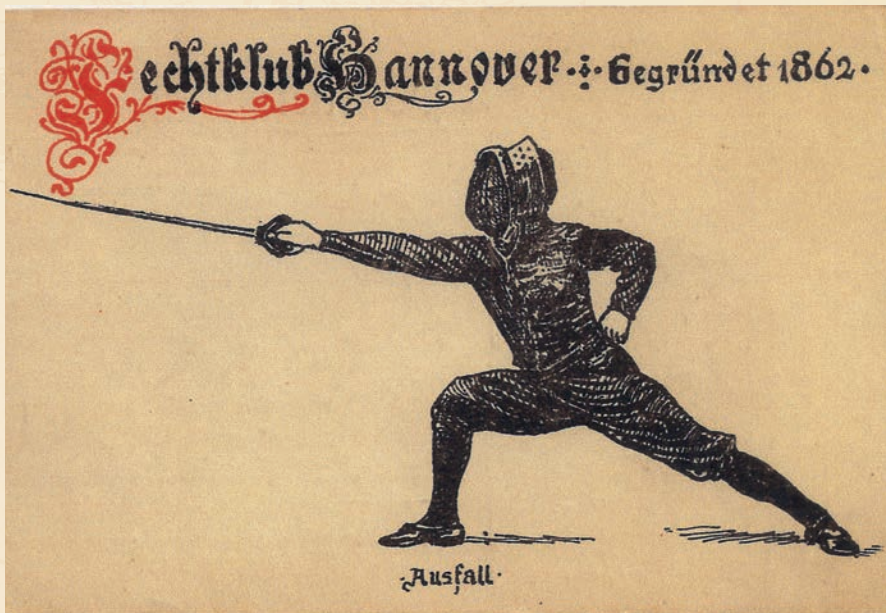 Fechtklub Hannover ·:· Gegründet 1862 ·
· Ausfall ·